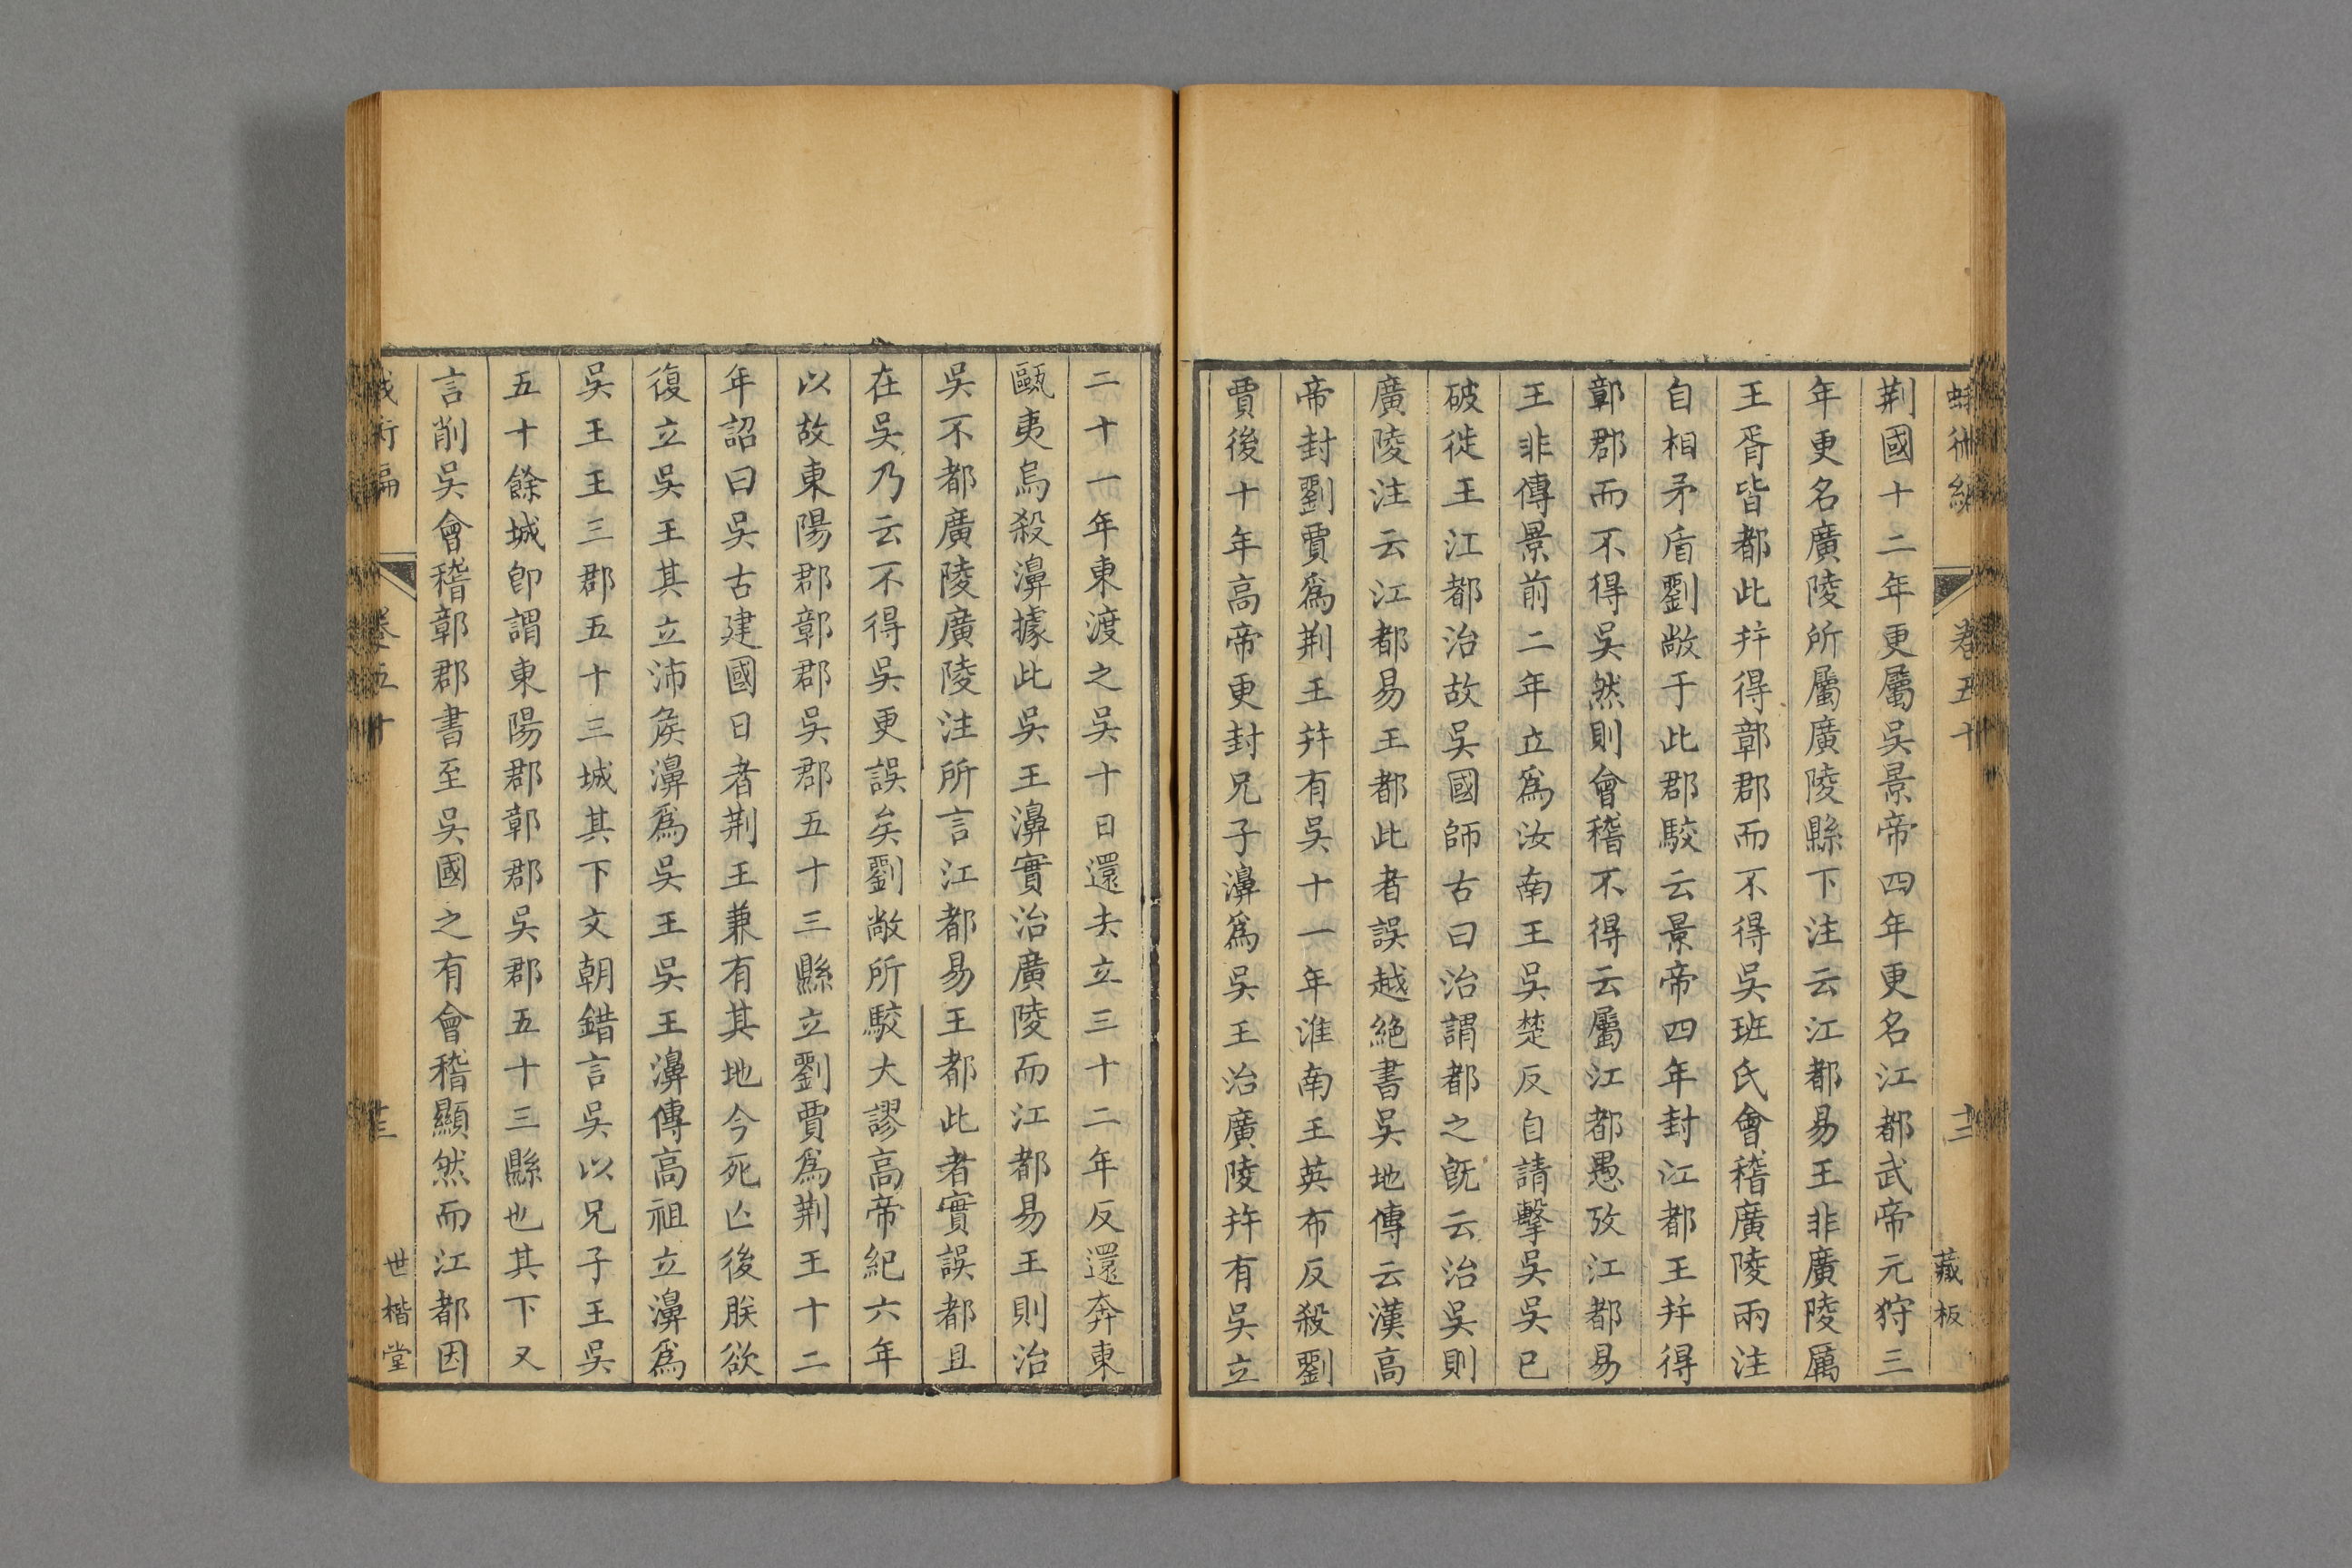 卷五十
十二
藏板
荆國十二年更屬吳景帝四年更名江都武帝元狩三
年更名廣陵所屬廣陵縣下注云江都易王非廣陵厲
王胥皆都此幷得鄣郡而不得吳班氏會稽廣陵兩注
自相矛盾劉敞于此郡駁云景帝四年封江都王幷得
鄣郡而不得吳然則會稽不得云屬江都愚攷江都易
王非傳景前二年立爲汝南王吳楚反自請擊吳吳已
破徙王江都治故吳國師古曰治謂都之旣云治吳則
廣陵注云江都易王都此者誤越絶書吳地傳云漢高
帝封劉賈爲荆王幷有吳十一年淮南王英布反殺劉
賈後十年高帝更封兄子濞爲吳王治廣陵幷有吳立
二十一年東渡之吳十日還去立三十二年反還奔東
甌夷烏殺濞據此吳王濞實治廣陵而江都易王則治
吳不都廣陵廣陵注所言江都易王都此者實誤都且
在吳乃云不得吳更誤矣劉敞所駁大謬高帝紀六年
以故東陽郡鄣郡吳郡五十三縣立劉賈爲荆王十二
年詔曰吳古建國日者荆王兼有其地今死亾後朕欲
復立吳王其立沛矦濞爲吳王吳王濞傳高祖立濞爲
吳王王三郡五十三城其下文朝錯言吳以兄子王吳
五十餘城卽謂東陽郡鄣郡吳郡五十三縣也其下又
言削吳會稽鄣郡書至吳國之有會稽顯然而江都因
術編
卷五十
世楷堂